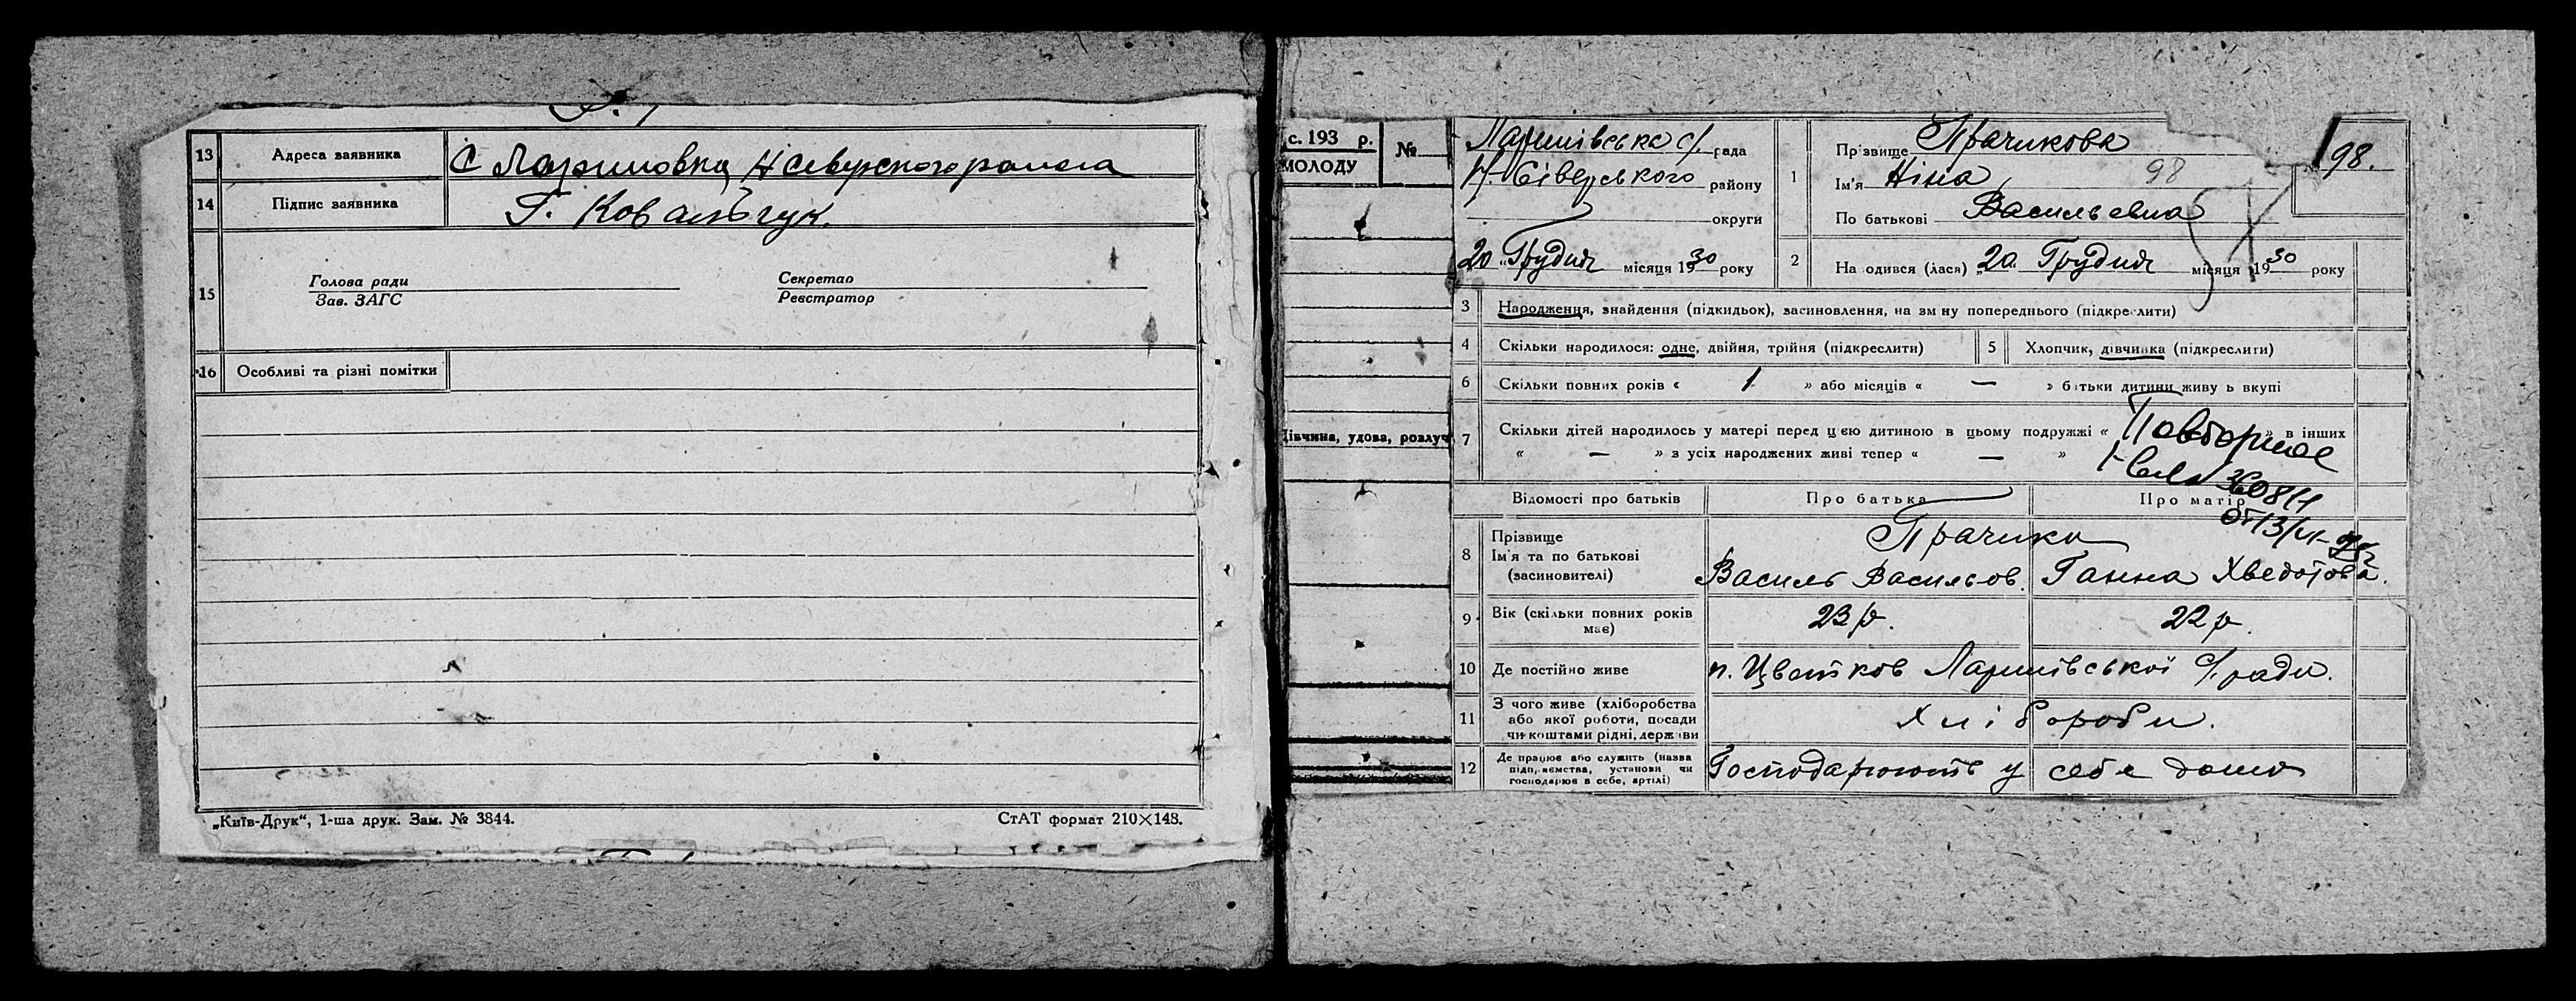 13 Адреса заявника С Лариновка Н Северского района
14 Підпис заявника Г. Ковальчук.
15
Голова ради
Зав. ЗАГС
Секретар
Реєстратор
16 Особливі та різні помітки
„Київ-Друк“, 1-ша друк. Зам. № 3844.
СтАТ формат 210×148.
с. 193 р. №
МОЛОДУ
Дівчина, удова, розлуч
Ларинівська с/. рада
Н.-Сіверського району
округи
20 „Грудня місяця 1930 року
1
Прізвище Прачикова
Ім'я Ніна 98
По батькові Васильевна
98.
2 На одився (лася) „20 Грудня місяця 1930 року
3 Народження, знайдення (підкидьок), засиновлення, на зм ну попереднього (підкреслити)
4 Скільки народилося: одне, двійня, трійня (підкреслити)
5 Хлопчик, дівчинка (підкреслити)
6 Скільки повних років « 1 » або місяців « — » батьки дитини живу ь вкупі
7 Скільки дітей народилось у матері перед цією дитиною в цьому подружжі « » в інших
« — » з усіх народжених живі тепер « — »
Повторное
Відомості про батьків
Про батька
Про матір
8 Прізвище
Ім'я та по батькові
(засиновителі)
Прачики
Василь Васильов. Ганна Хведотова.
9 Вік (скільки повних років має) 23 р. 22 р.
10 Де постійно живе п. Цветков Ларинівської с/ради.
11 З чого живе (хліборобства або якої роботи, посади чи коштами рідні, держави Хлібороби.
12 Де працює або служить (назва підприємства, установи чи господарює в себе, артілі) Господарюють у себе дома